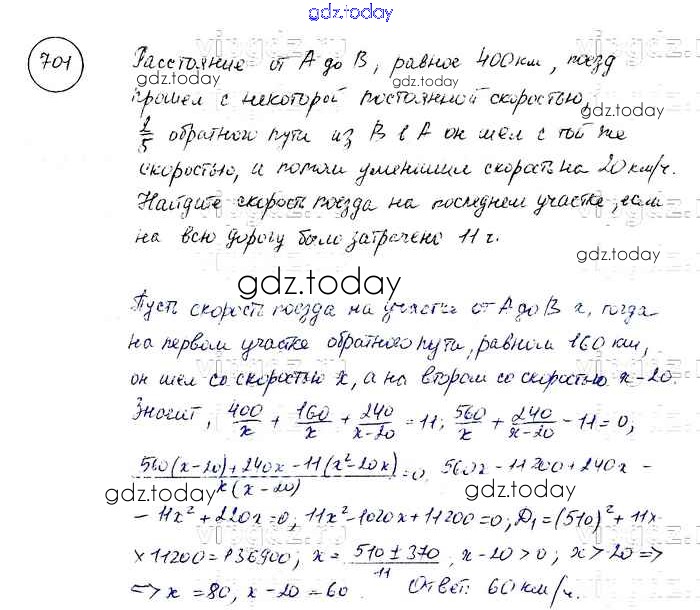 gdz.today
701
Расстояние от А до В, равное 400 км, поезд
прошел с некоторой постоянной скоростью,
2/5 обратного пути из В в А он шел с той же
скоростью, и потом уменьшил скорость на 20 км/ч.
Найдите скорость поезда на последнем участке, если
на всю дорогу было затрачено 11 ч.
gdz.today
Пусть скорость поезда на участке от А до В x, тогда
на первом участке обратного пути, равном 160 км,
он шел со скоростью x, а на втором со скоростью x-20.
Значит, 400/x + 160/x + 240/(x-20) = 11; 560/x + 240/(x-20) - 11 = 0;
(560(x-20)+240x-11(x²-20x))/(x(x-20)) = 0, 560x-11200+240x-
-11x²+220x=0, 11x²-1020x+11200=0; D₁=(510)²+11×
×11200=136900; x = (510±370)/11, x-20>0; x>20 =>
=> x = 80, x-20 = 60. Ответ: 60 км/ч.